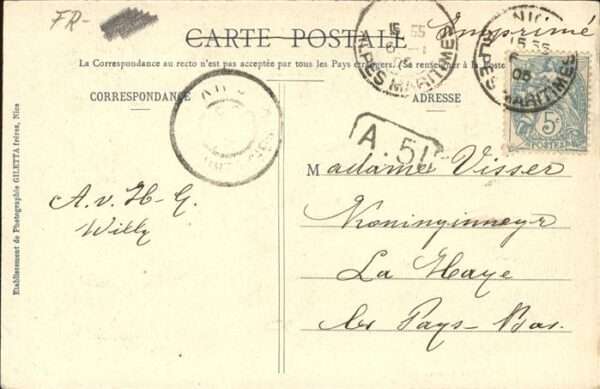 FR-
Imprimé
CARTE POSTALE
La Correspondance au recto n'est pas acceptée par tous les Pays étrangers. (Se renseigner à la Poste
CORRESPONDANCE
ADRESSE
15 55
ALPES MARITIMES
NICE
15 55
05
ALPES MARITIMES
5c
POSTES
A.51
Madame Visser
La Haye
les Pays-Bas.
A. v. H-G.
Willy
Etablissement de Photographie GILETTA frères, Nice